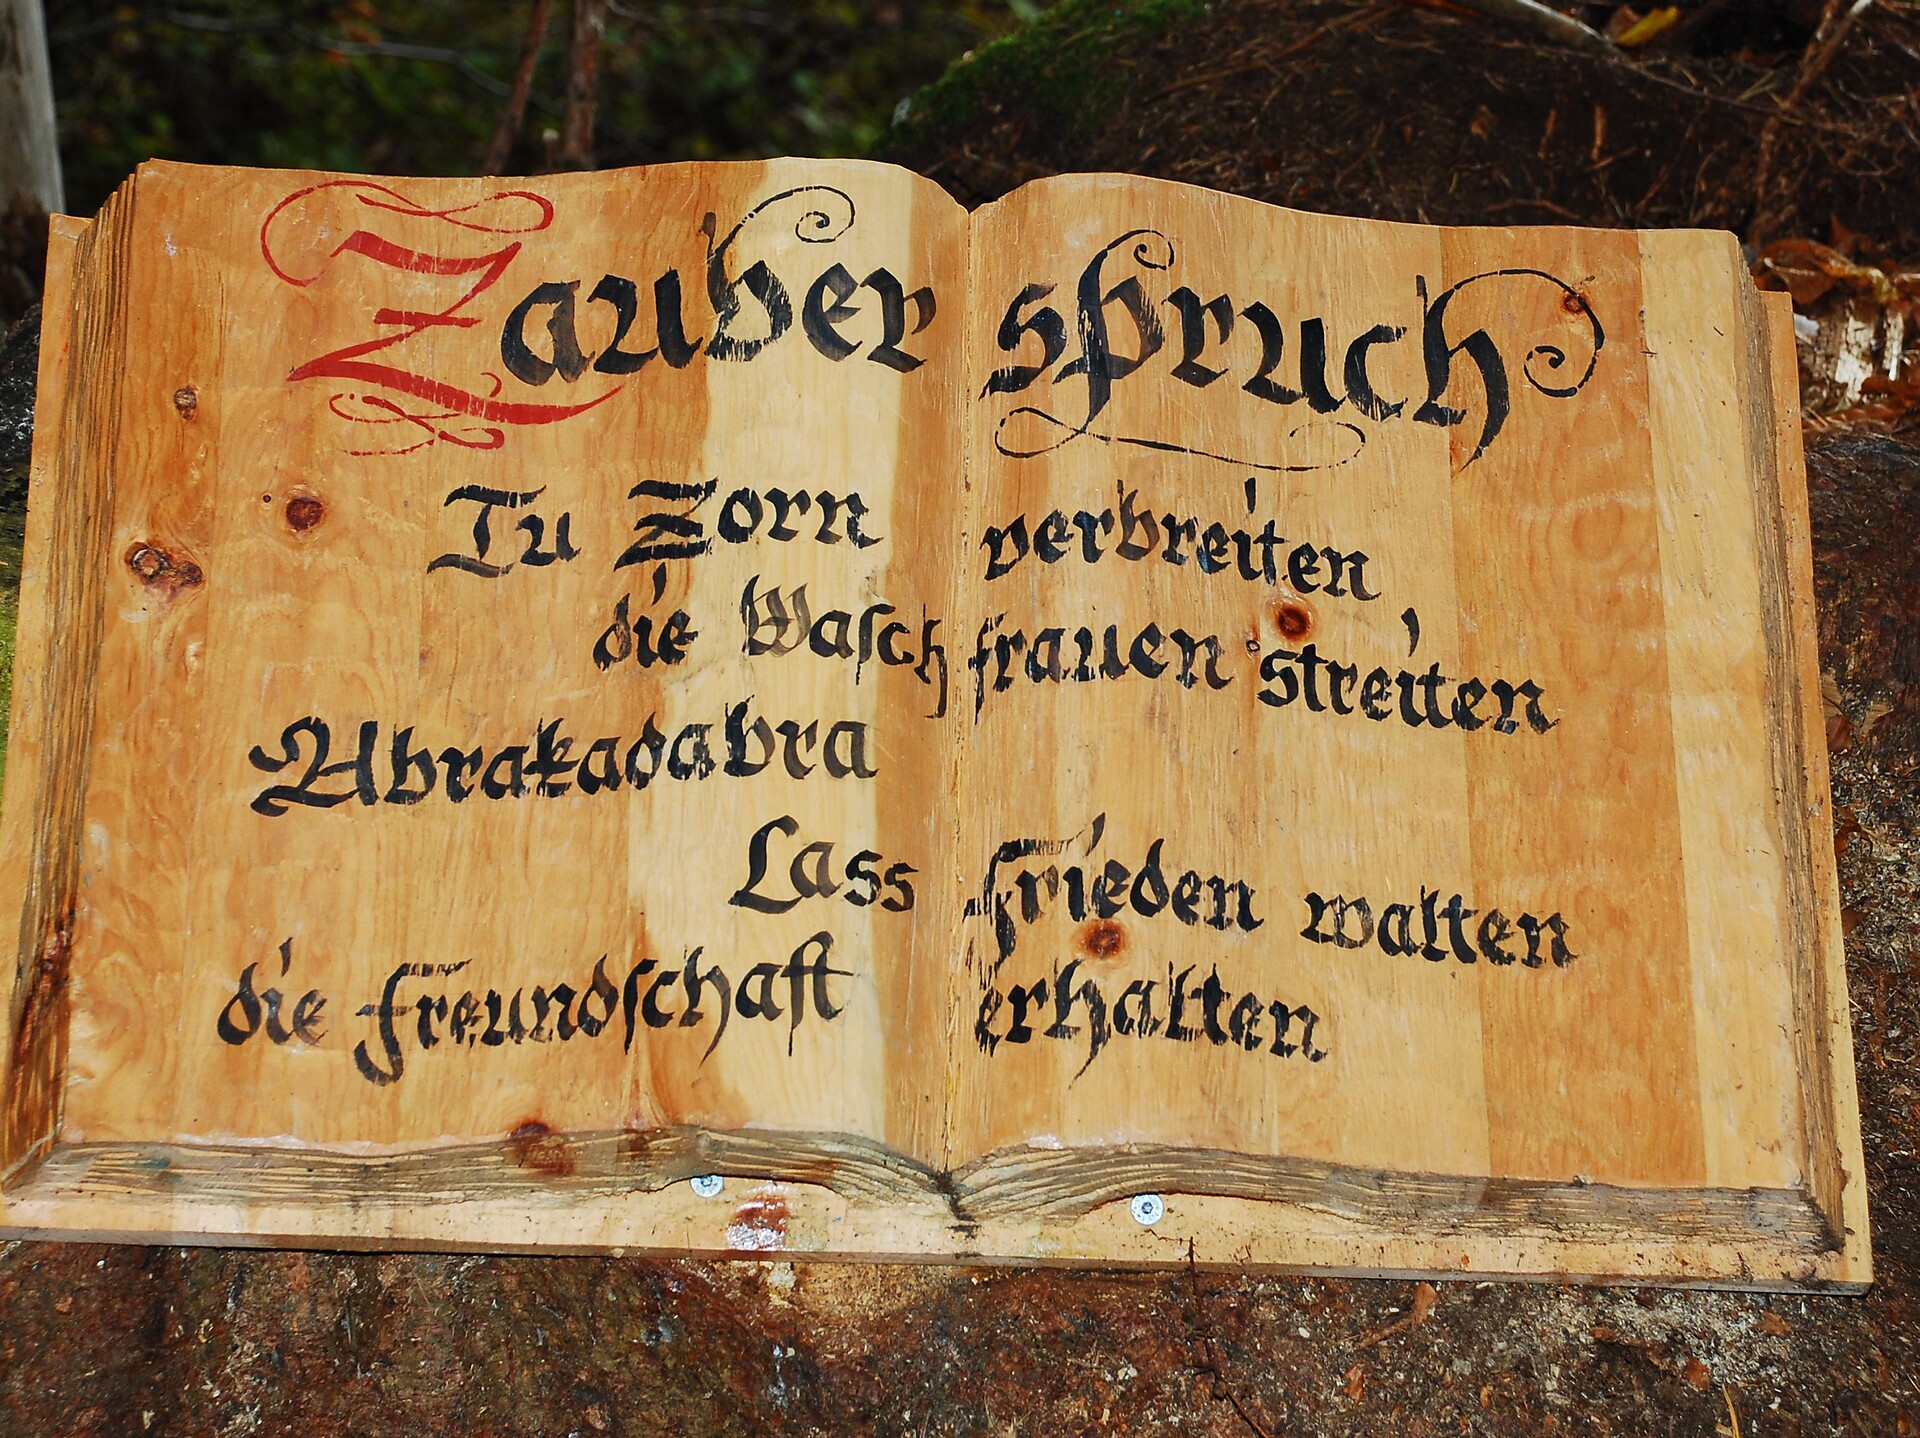 Zauberspruch
Tu Zorn verbreiten
die Waschfrauen streiten
Abrakadabra
Lass Frieden walten
die Freundschaft erhalten